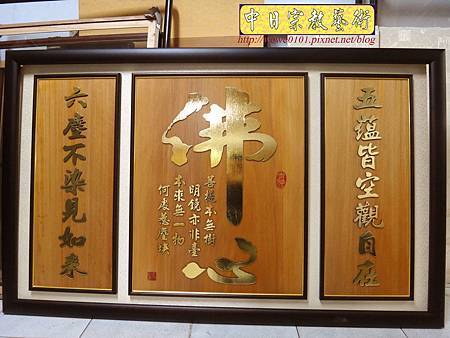 中日宗教藝術
五蘊皆空觀自在
佛心
菩提本無樹
明鏡亦非臺
本來無一物
何處惹塵埃
六塵不染見如來